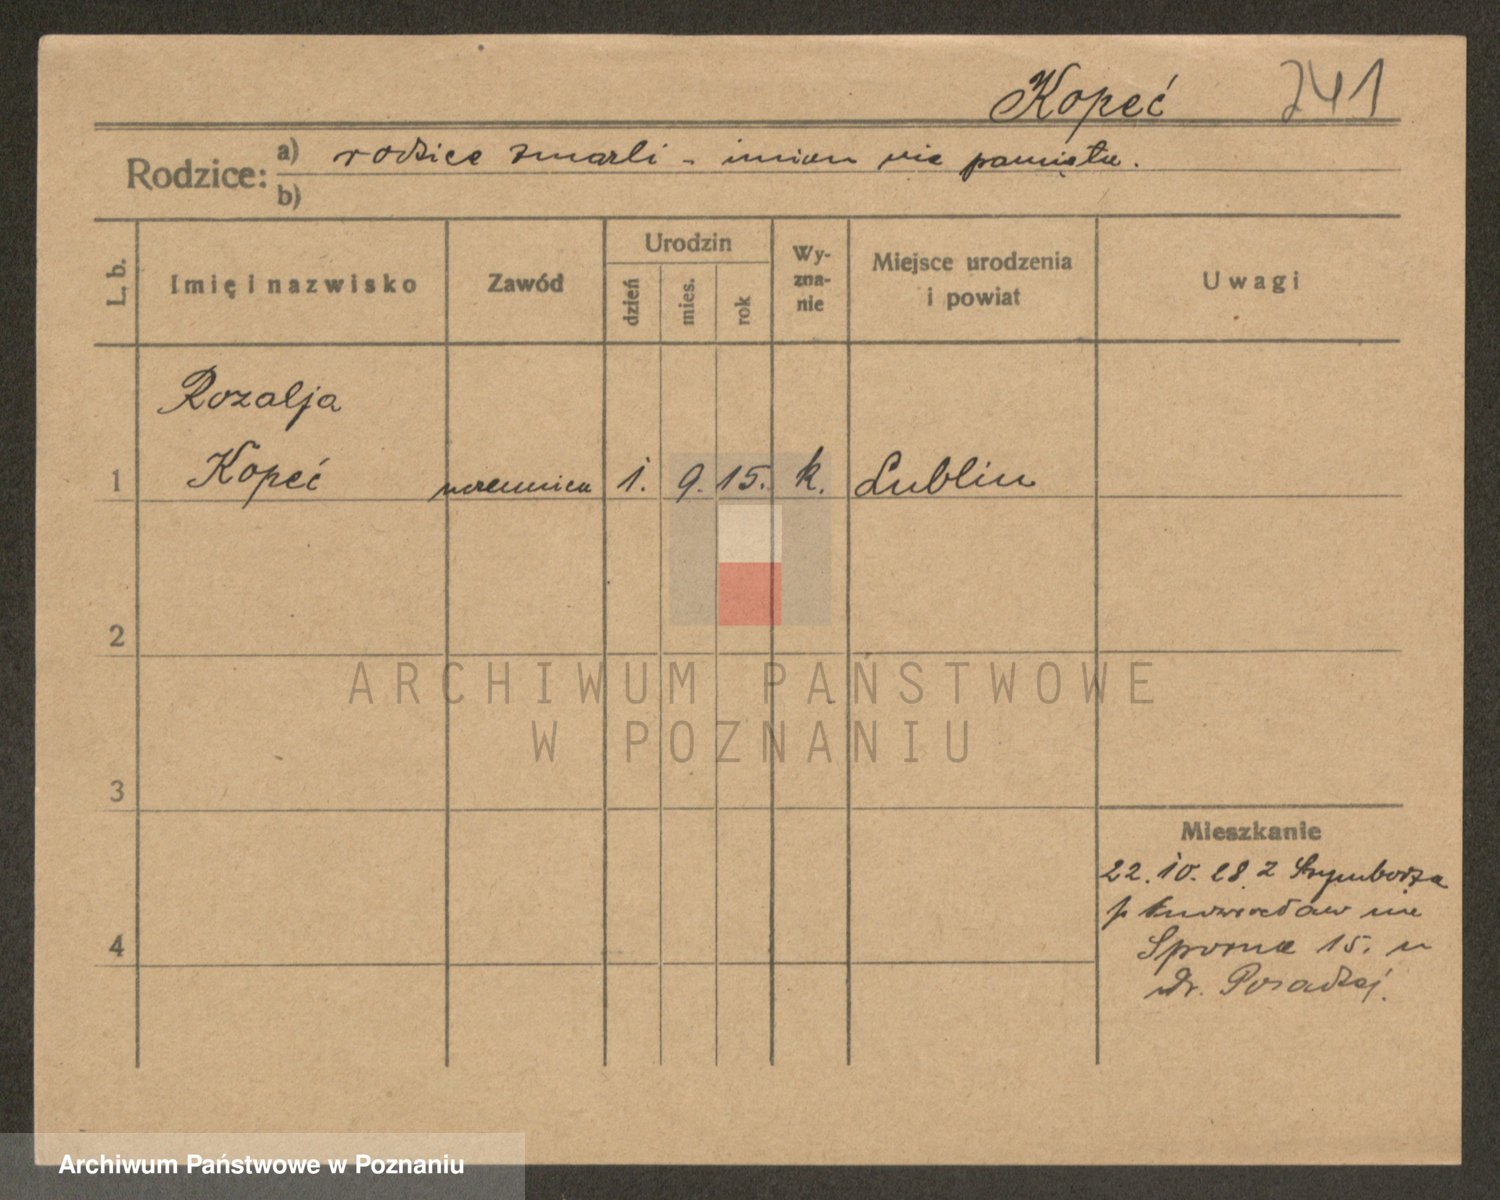 Kopeć 241
Rodzice: a) rodzice zmarli - imion nie pamięta.
b)
L. b. Imię i nazwisko Zawód Urodzin dzień mies. rok Wy-zna-nie Miejsce urodzenia i powiat Uwagi
Rozalja
1 Kopeć uczennica 1. 9. 15. k. Lublin
2
ARCHIWUM PAŃSTWOWE
W POZNANIU
3
Mieszkanie
22. 10. 28. z Szymborza
p. Inowrocław
4
Sporna 15. u
Dr. Posadzej.
Archiwum Państwowe w Poznaniu